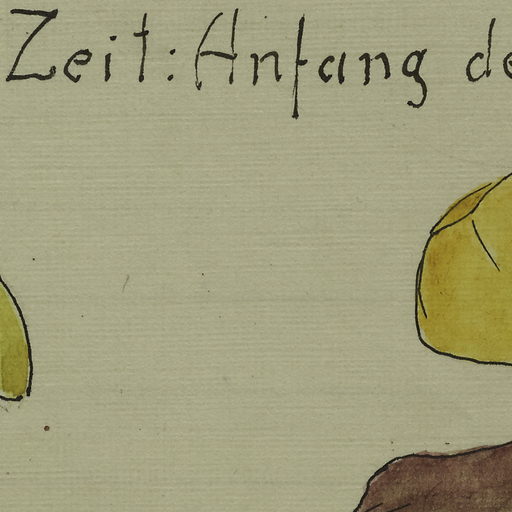 Zeit: Anfang de